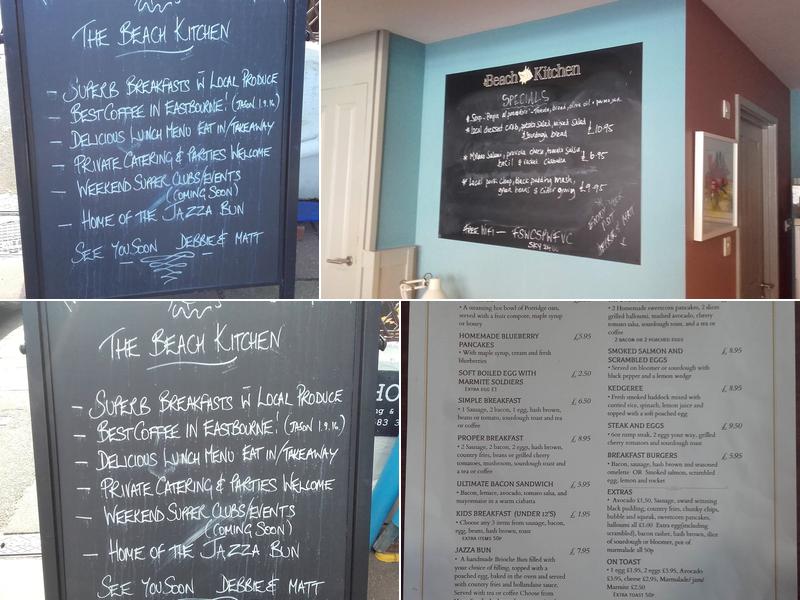 THE BEACH KITCHEN
– SUPERB BREAKFASTS W LOCAL PRODUCE
– BEST COFFEE IN EASTBOURNE! (JASON 1.9.16)
– DELICIOUS LUNCH MENU EAT IN/TAKEAWAY
– PRIVATE CATERING & PARTIES WELCOME
– WEEKEND SUPPER CLUBS/EVENTS
(COMING SOON)
– HOME OF THE JAZZA BUN
SEE YOU SOON DEBBIE & MATT
Beach Kitchen
SPECIALS
* Soup - Pappa al pomodoro - Tomato, bread, olive oil + parmesan
* Local dressed crab, potato salad, mixed salad
& sourdough bread £10.95
* Milano Salami, provola cheese, tomato salsa,
basil & rocket ciabatta £6.95
* Local pork chop, black pudding mash,
green beans & cider gravy £9.95
FREE WIFI —
THE BEACH KITCHEN
– SUPERB BREAKFASTS W LOCAL PRODUCE
– BEST COFFEE IN EASTBOURNE! (JASON 1.9.16)
– DELICIOUS LUNCH MENU EAT IN/TAKEAWAY
– PRIVATE CATERING & PARTIES WELCOME
– WEEKEND SUPPER CLUBS/EVENTS
(COMING SOON)
– HOME OF THE JAZZA BUN
SEE YOU SOON DEBBIE & MATT
HO
ng &
583 3
• A steaming hot bowl of Porridge oats,
served with a fruit compote, maple syrup
or honey
HOMEMADE BLUEBERRY
PANCAKES £5.95
• With maple syrup, cream and fresh
blueberries
SOFT BOILED EGG WITH
MARMITE SOLDIERS £ 2.50
EXTRA EGG £1
SIMPLE BREAKFAST £ 6.50
• 1 Sausage, 2 bacon, 1 egg, hash brown,
beans or tomato, sourdough toast and tea
or coffee
PROPER BREAKFAST £ 8.95
• 2 Sausage, 2 bacon, 2 eggs, hash brown,
country fries, beans or grilled cherry
tomatoes, mushroom, sourdough toast and
a tea or coffee
ULTIMATE BACON SANDWICH £ 5.95
• Bacon, lettuce, avocado, tomato salsa, and
mayonnaise in a warm ciabatta
KIDS BREAKFAST (UNDER 12'S) £ 1.95
• Choose any 3 items from sausage, bacon,
egg, beans, hash brown, toast
EXTRA ITEMS 50P
JAZZA BUN £ 7.95
• A handmade Brioche Bun filled with
your choice of filling, topped with a
poached egg, baked in the oven and served
with country fries and hollandaise sauce.
Served with tea or coffee Choose from
• 2 Homemade sweetcorn pancakes, 2 slices
grilled halloumi, mashed avocado, cherry
tomato salsa, sourdough toast, and a tea or
coffee
2 BACON OR 2 PORCHED EGGS
SMOKED SALMON AND
SCRAMBLED EGGS £ 8.95
• Served on bloomer or sourdough with
black pepper and a lemon wedge
KEDGEREE £ 8.95
• Fresh smoked haddock mixed with
curried rice, spinach, lemon juice and
topped with a soft poached egg
STEAK AND EGGS £ 9.50
• 6oz rump steak, 2 eggs your way, grilled
cherry tomatoes and sourdough toast
BREAKFAST BURGERS £ 5.95
• Bacon, sausage, hash brown and seasoned
omelette OR Smoked salmon, scrambled
egg, lemon and rocket
EXTRAS
• Avocado £1.50, Sausage, award winning
black pudding, country fries, chunky chips,
bubble and squeak, sweetcorn pancakes,
halloumi all £1.00 Extra egg(including
scrambled), bacon rasher, hash brown, slice
of sourdough or bloomer, pot of
marmalade all 50p
ON TOAST
• 1 egg £1.95, 2 eggs £3.95, Avocado
£3.95, cheese £2.95, Marmalade/ jam/
Marmite £2.50
EXTRA TOAST 50P